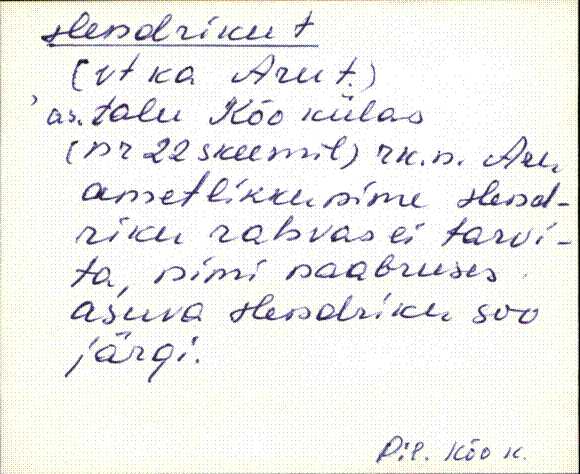 Hendriku t
(vt ka Aru t.)
as. talu Kõo külas
(nr 22 skeemil) rk.n. Aru
ametlikku nime Hend-
riku rahvas ei tarvi-
ta, nimi naabruses
asuva Hendriku soo
järgi.
Pil. Kõo k.